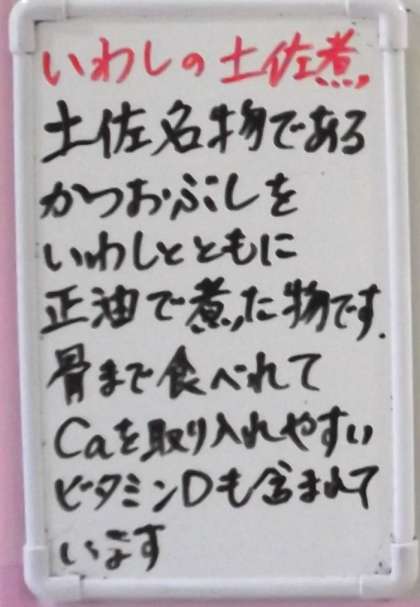 いわしの土佐煮
土佐名物である
かつおぶしを
いわしとともに
正油で煮た物です.
骨まで食べれて
Caを取り入れやすい
ビタミンDも含まれて
います